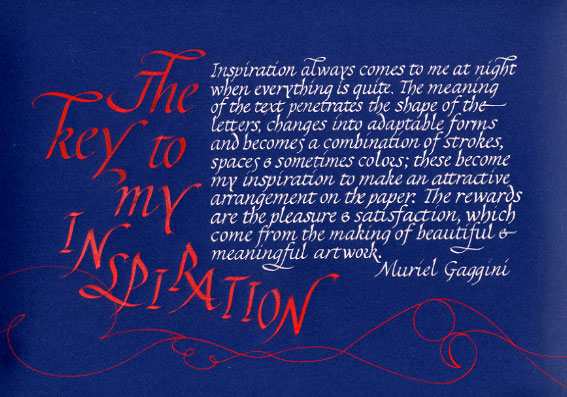 The
key to
my
INSPIRATION
Inspiration always comes to me at night
when everything is quite. The meaning
of the text penetrates the shape of the
letters, changes into adaptable forms
and becomes a combination of strokes,
spaces & sometimes colors; these become
my inspiration to make an attractive
arrangement on the paper. The rewards
are the pleasure & satisfaction, which
come from the making of beautiful &
meaningful artwork.
Muriel Gaggini